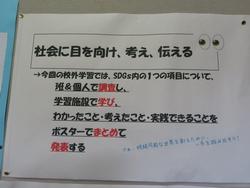 社会に目を向け、考え、伝える
→今回の校外学習では、SDGs内の1つの項目について、
班&個人で調査し、
学習施設で学び、
わかったこと・考えたこと・実践できることを
ポスターでまとめて
発表する
持続可能な世界を創るために、